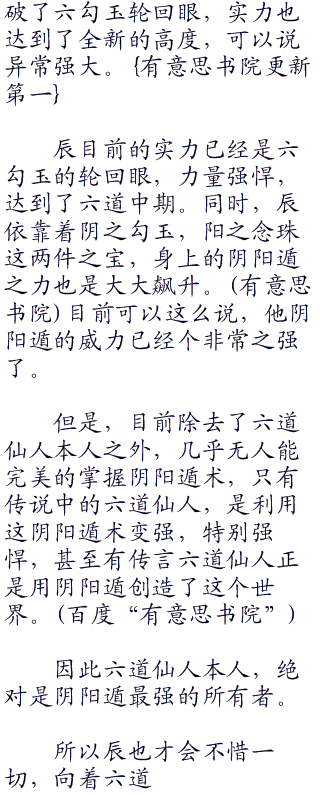 破了六勾玉轮回眼，实力也
达到了全新的高度，可以说
异常强大。{有意思书院更新
第一}
辰目前的实力已经是六
勾玉的轮回眼，力量强悍，
达到了六道中期。同时，辰
依靠着阴之勾玉，阳之念珠
这两件之宝，身上的阴阳遁
之力也是大大飙升。(有意思
书院)目前可以这么说，他阴
阳遁的威力已经个非常之强
了。
但是，目前除去了六道
仙人本人之外，几乎无人能
完美的掌握阴阳遁术，只有
传说中的六道仙人，是利用
这阴阳遁术变强，特别强
悍，甚至有传言六道仙人正
是用阴阳遁创造了这个世
界。(百度“有意思书院”)
因此六道仙人本人，绝
对是阴阳遁最强的所有者。
所以辰也才会不惜一
切，向着六道